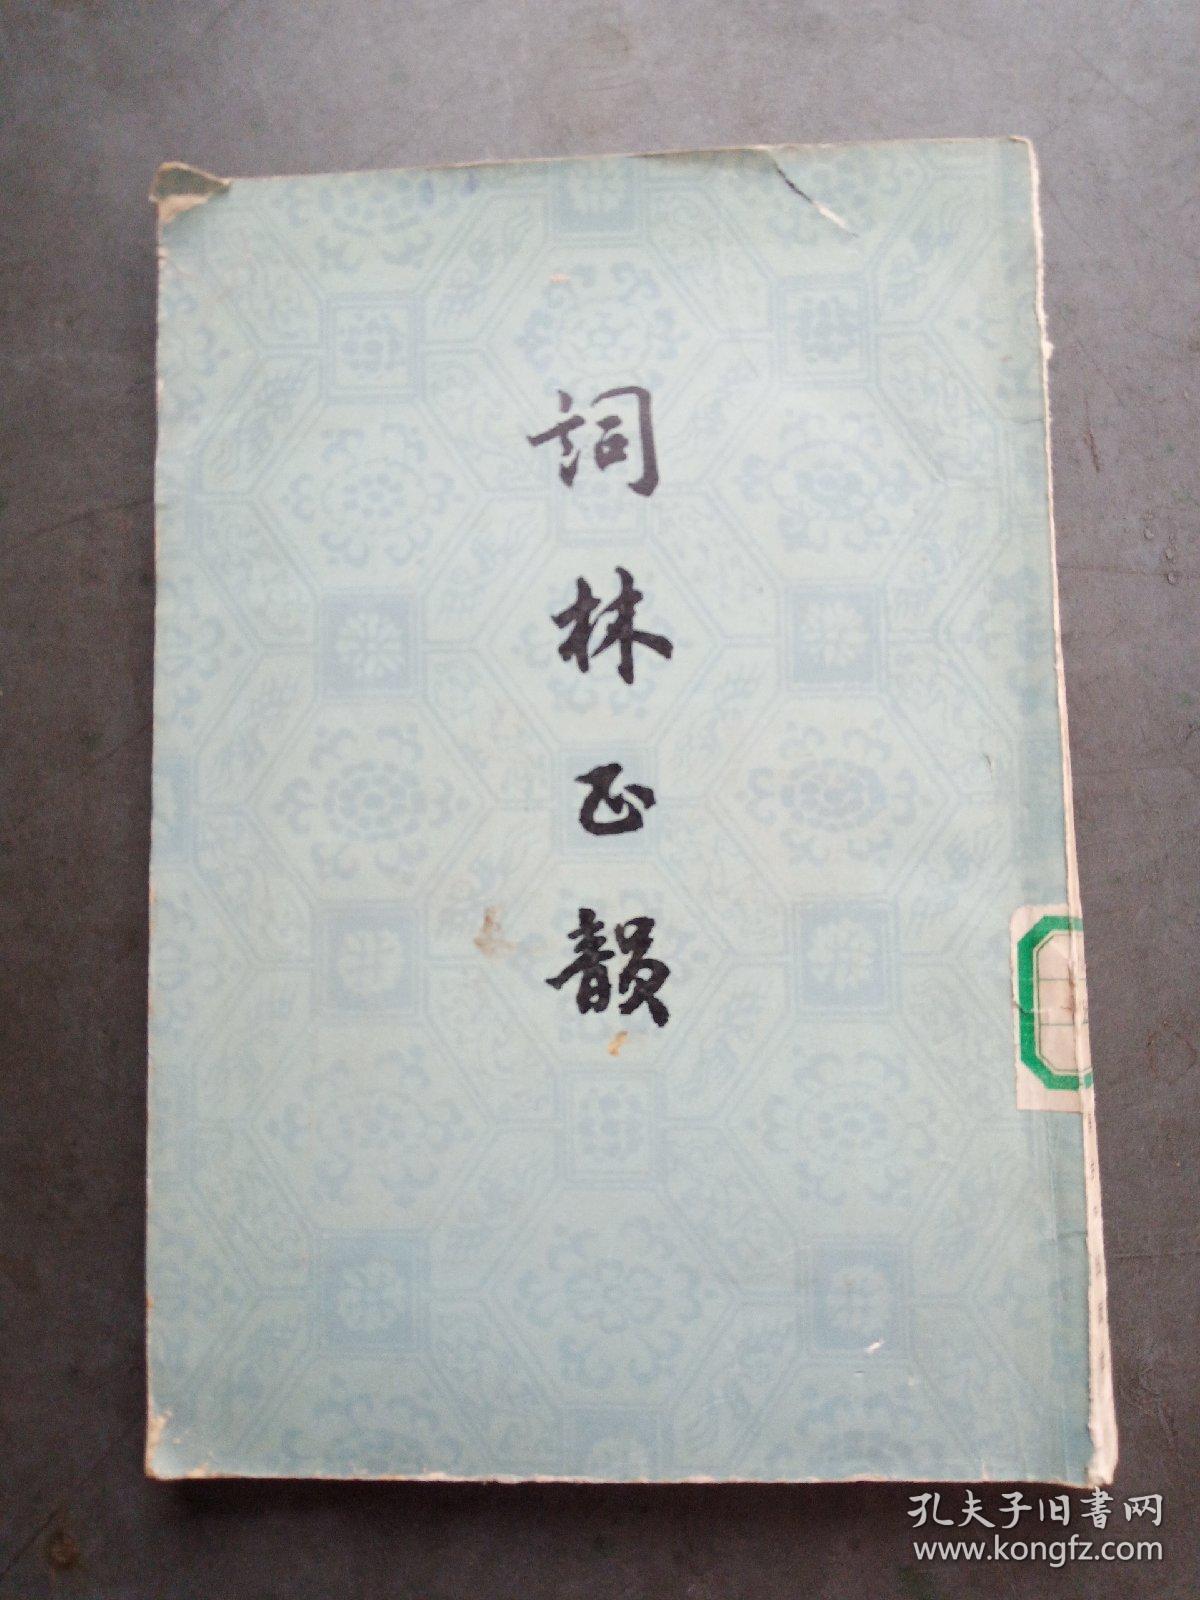 詞林正韻
孔夫子旧書网
www.kongfz.com